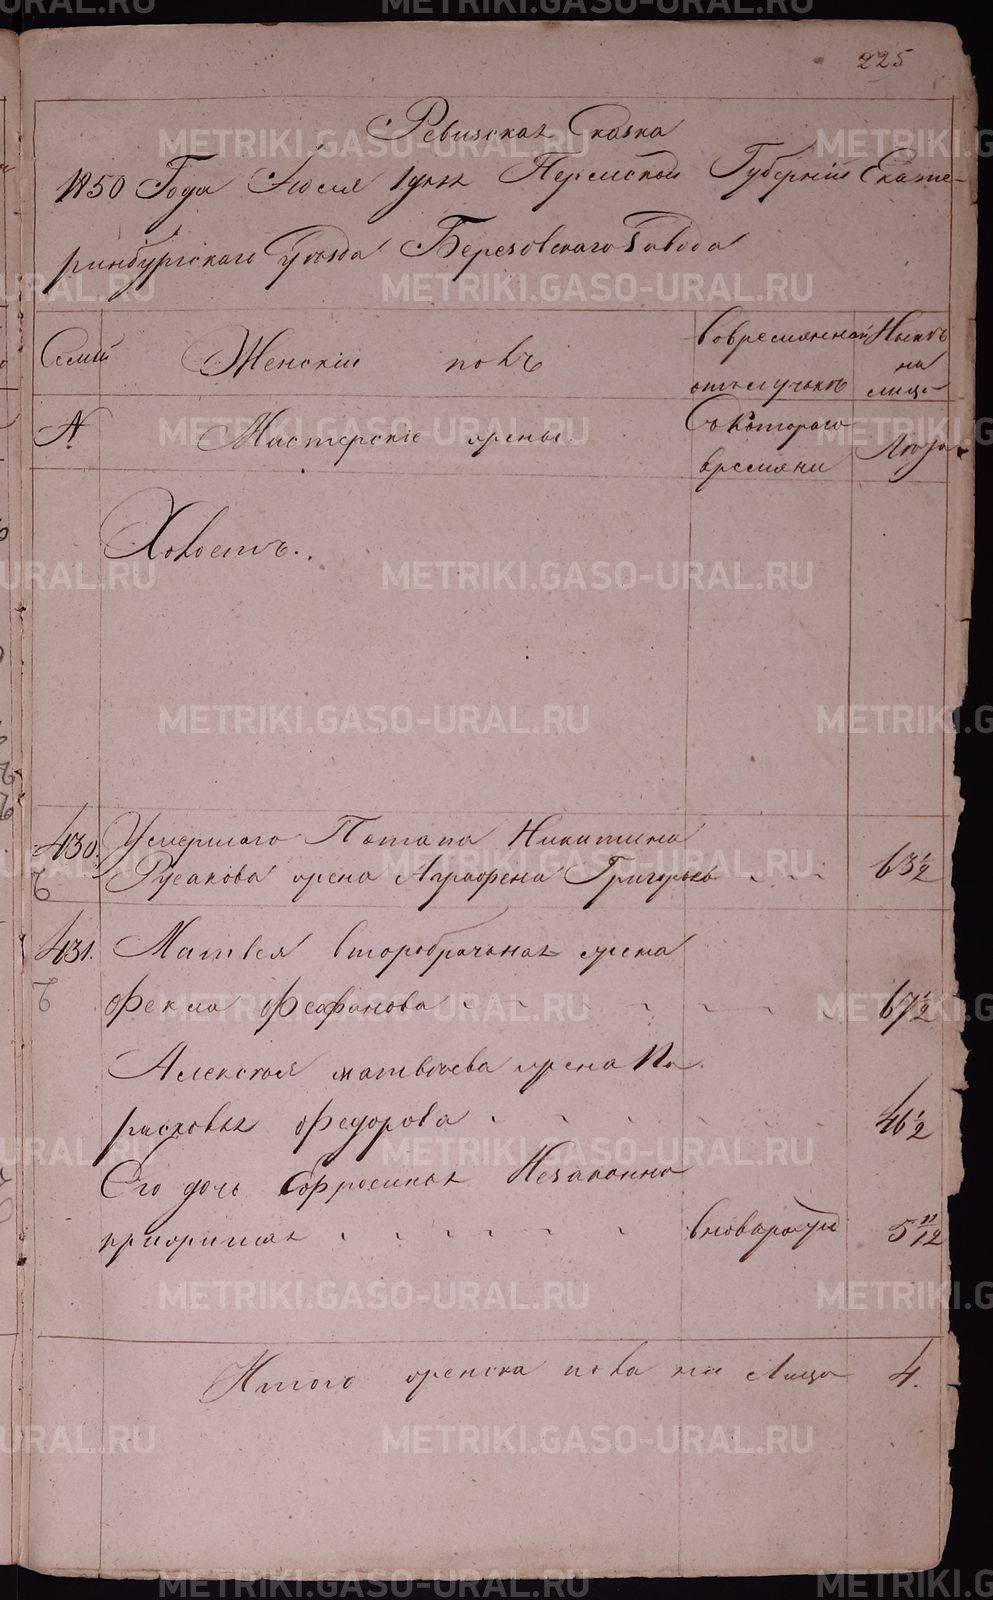 225
Ревизская Сказка
1850 Года Июля 1 дня Пермской Губернии Екате-
ринбургского Уезда Березовского Завода
Семьи
Женскiй полъ
Вовременной
отълучькѣ
Нынѣ
на
лицо
№
Мастерскiе жены
Съ Котораго
времяни
Лета
Холостъ.
430.
Умершаго Потапа Никитина
Русакова жена Аграфена Григорьева
63 1/2
431.
Матвея второбрачьная жена
Фекла Феофанова
67 1/2
Алексея Матвѣева жена Па
расковья Федорова
46 1/2
Его дочь Ефросинья Незаконно
прижитая
вновь рожд
5 11/12
Итого женска пола на Лицо 4.
METRIKI.GASO-URAL.RU